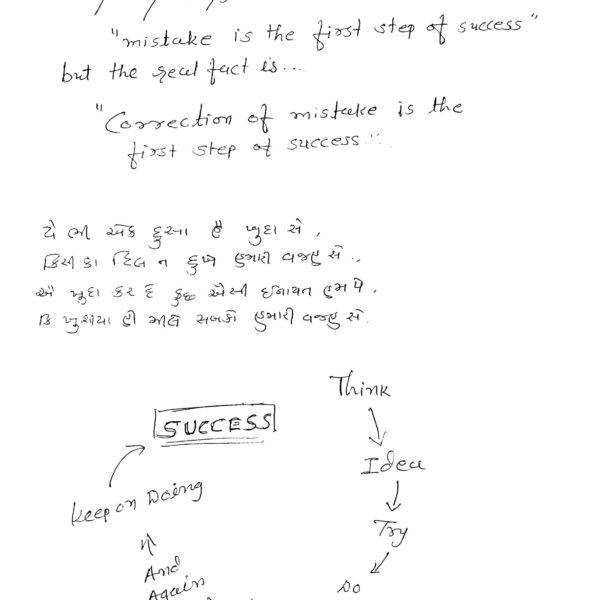 "mistake is the first step of success"
but the real fact is...
"Correction of mistake is the
first step of success".
યે ભી એક દુઆ હૈ ખુદા સે,
કિસી કા દિલ ન દુખે હમારી વજહ સે.,
એ ખુદા કર દે કુછ એસી ઇનાયત હમ પે,
કિ ખુશીયા હી મીલે સબકો હમારી વજહ સે.
Think
SUCCESS
Idea
Keep on Doing
Try
And
Again
Do